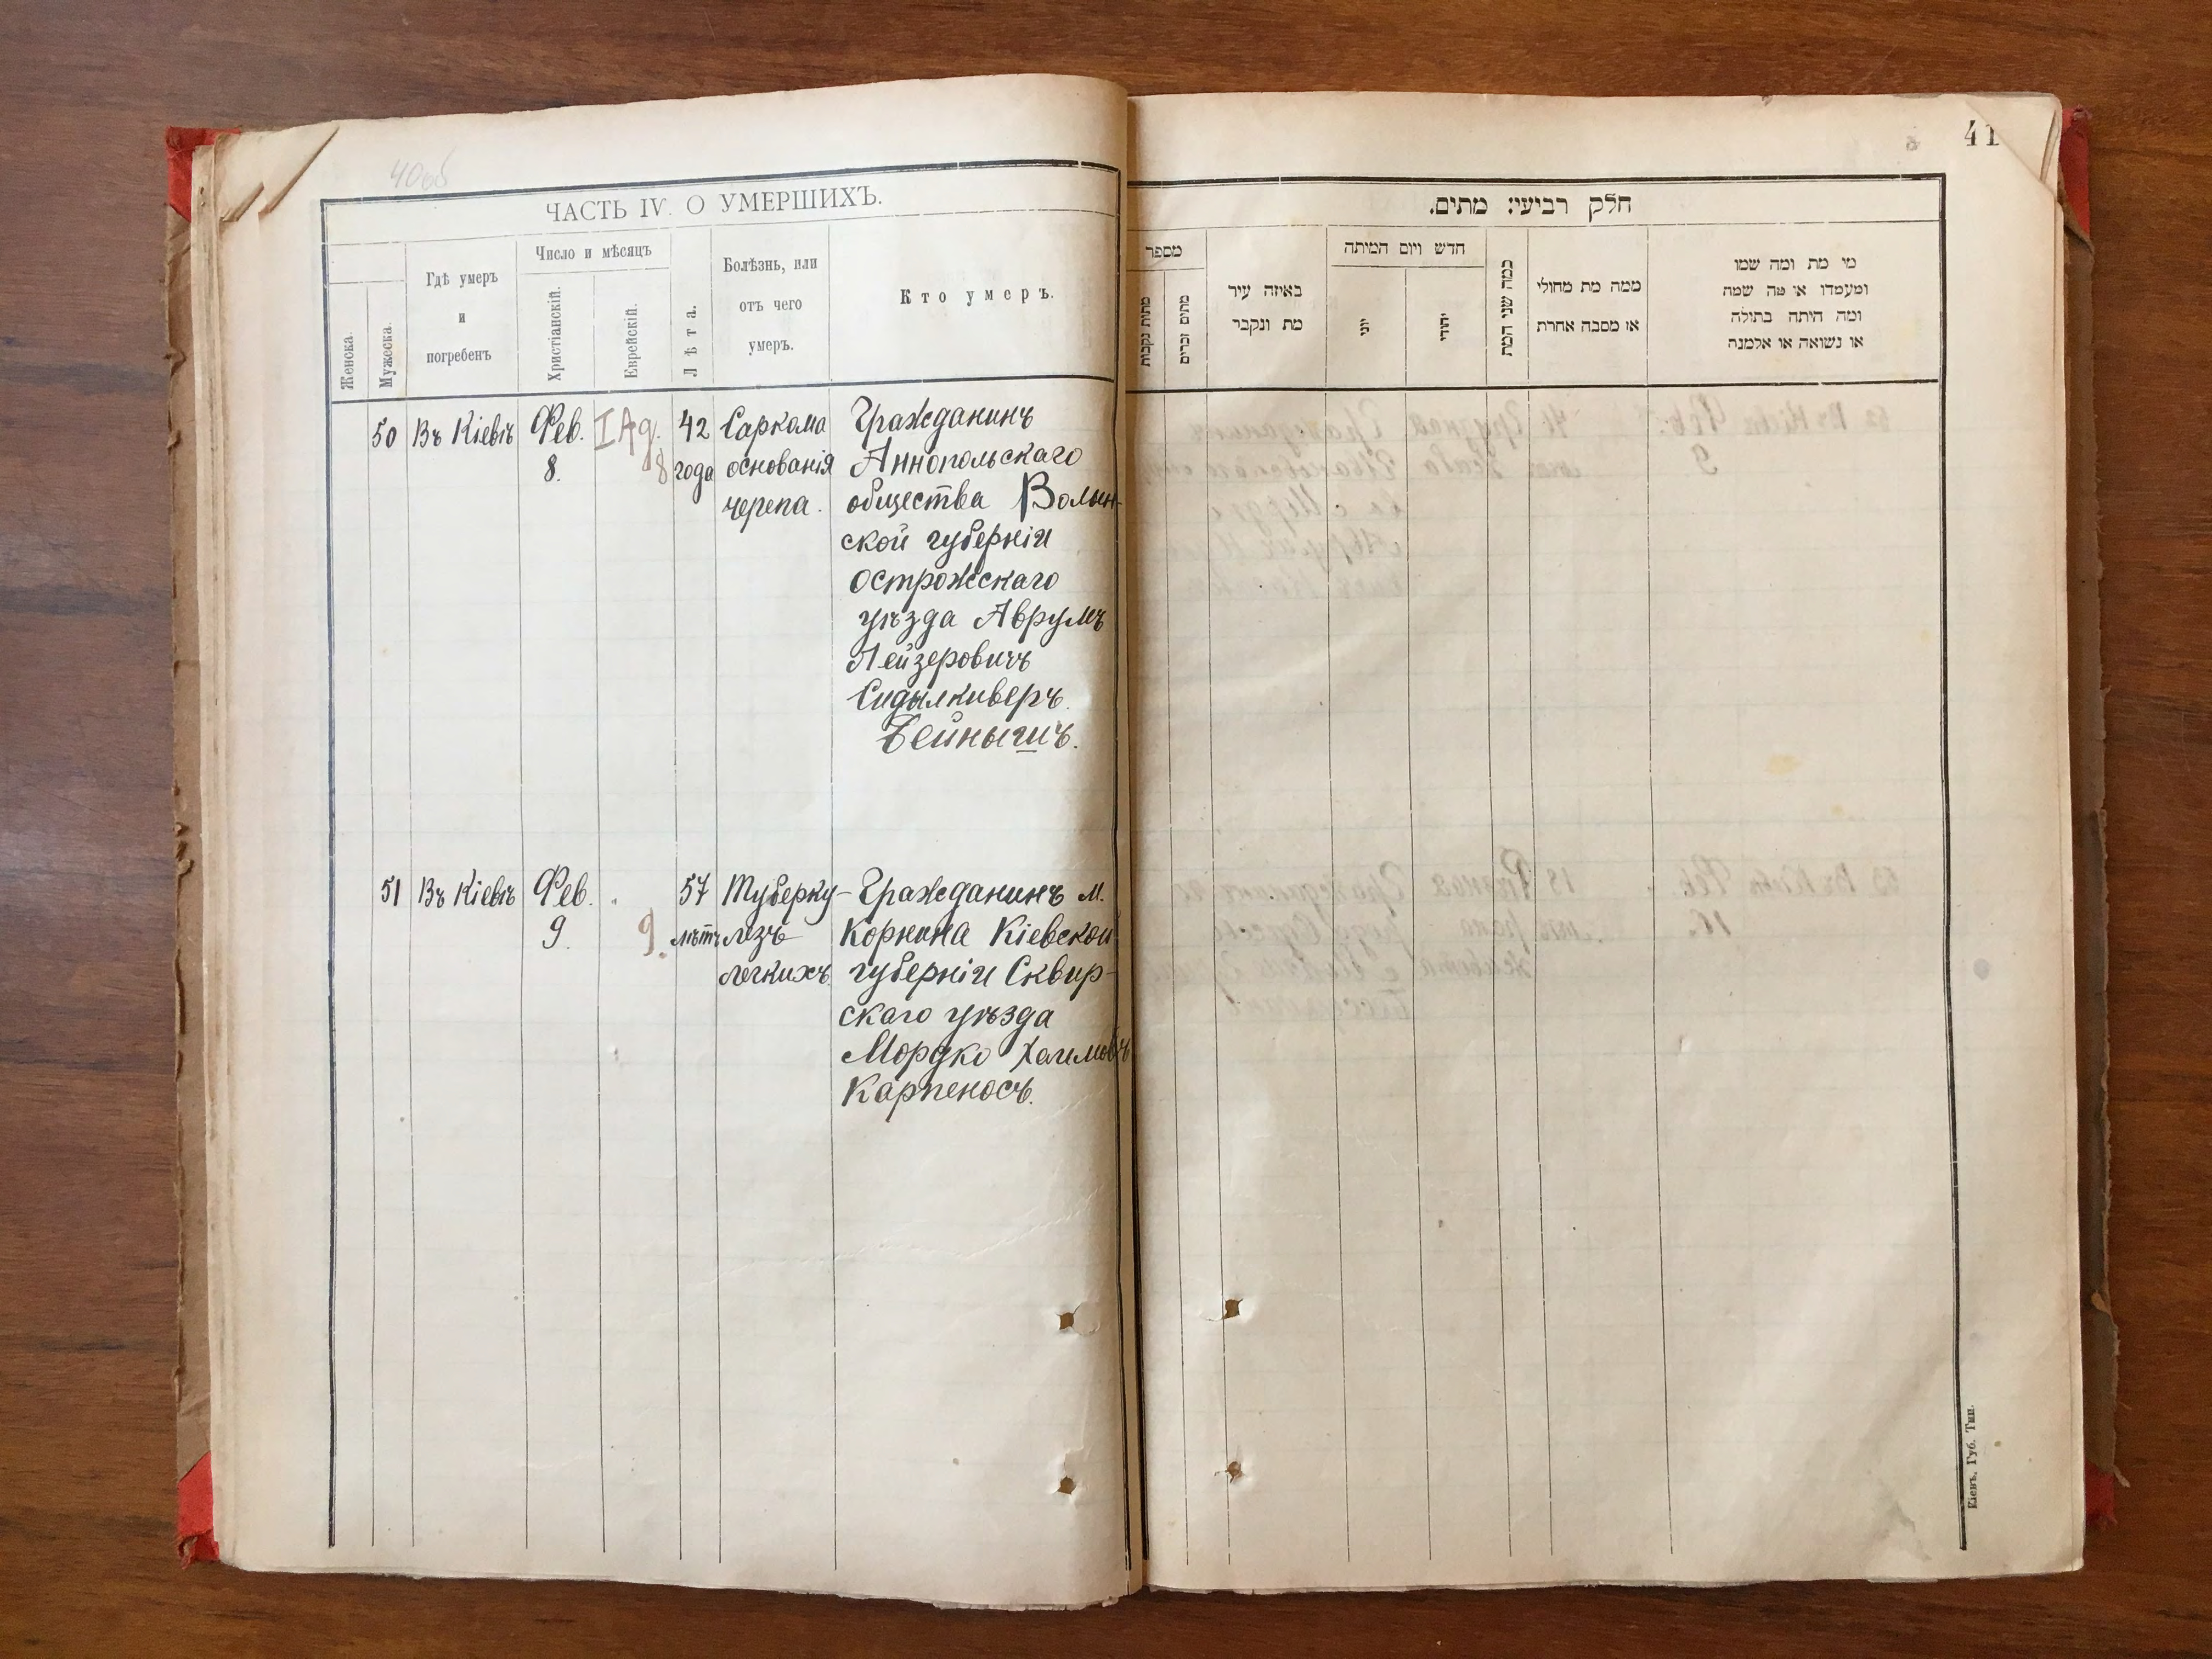 40об
ЧАСТЬ IV. О УМЕРШИХЪ.
Женска.
Мужеска.
Гдѣ умеръ
и
погребенъ
Число и мѣсяцъ
Христіанскій.
Еврейскій.
Лѣта.
Болѣзнь, или
отъ чего
умеръ.
Кто умеръ.
50
Въ Кіевѣ
Фев.
8.
I Ад.
8
42
года
Саркома
основанія
черепа.
Гражданинъ
Аннопольскаго
общества Волын-
ской губерніи
Острожскаго
уѣзда Аврумъ
Лейзеровичъ
Сидылкиверъ.
Бейнышъ.
51
Въ Кіевѣ
Фев.
9.
9.
57
лѣтъ
Туберку-
лезъ
легкихъ.
Гражданинъ м.
Корнина Кіевской
губерніи Сквир-
скаго уѣзда
Мордко Хаимовъ
Карпеносъ.
41
חלק רביעי: מתים.
מספר
מתות נקבות
מתים זכרים
באיזה עיר
מת ונקבר
חדש ויום המיתה
יוני
יהודי
כמה שני המת
ממה מת מחולי
או מסבה אחרת
מי מת ומה שמו
ומעמדו או מה שמה
ומה היתה בתולה
או נשואה או אלמנה
Кіевъ, Губ. Тип.